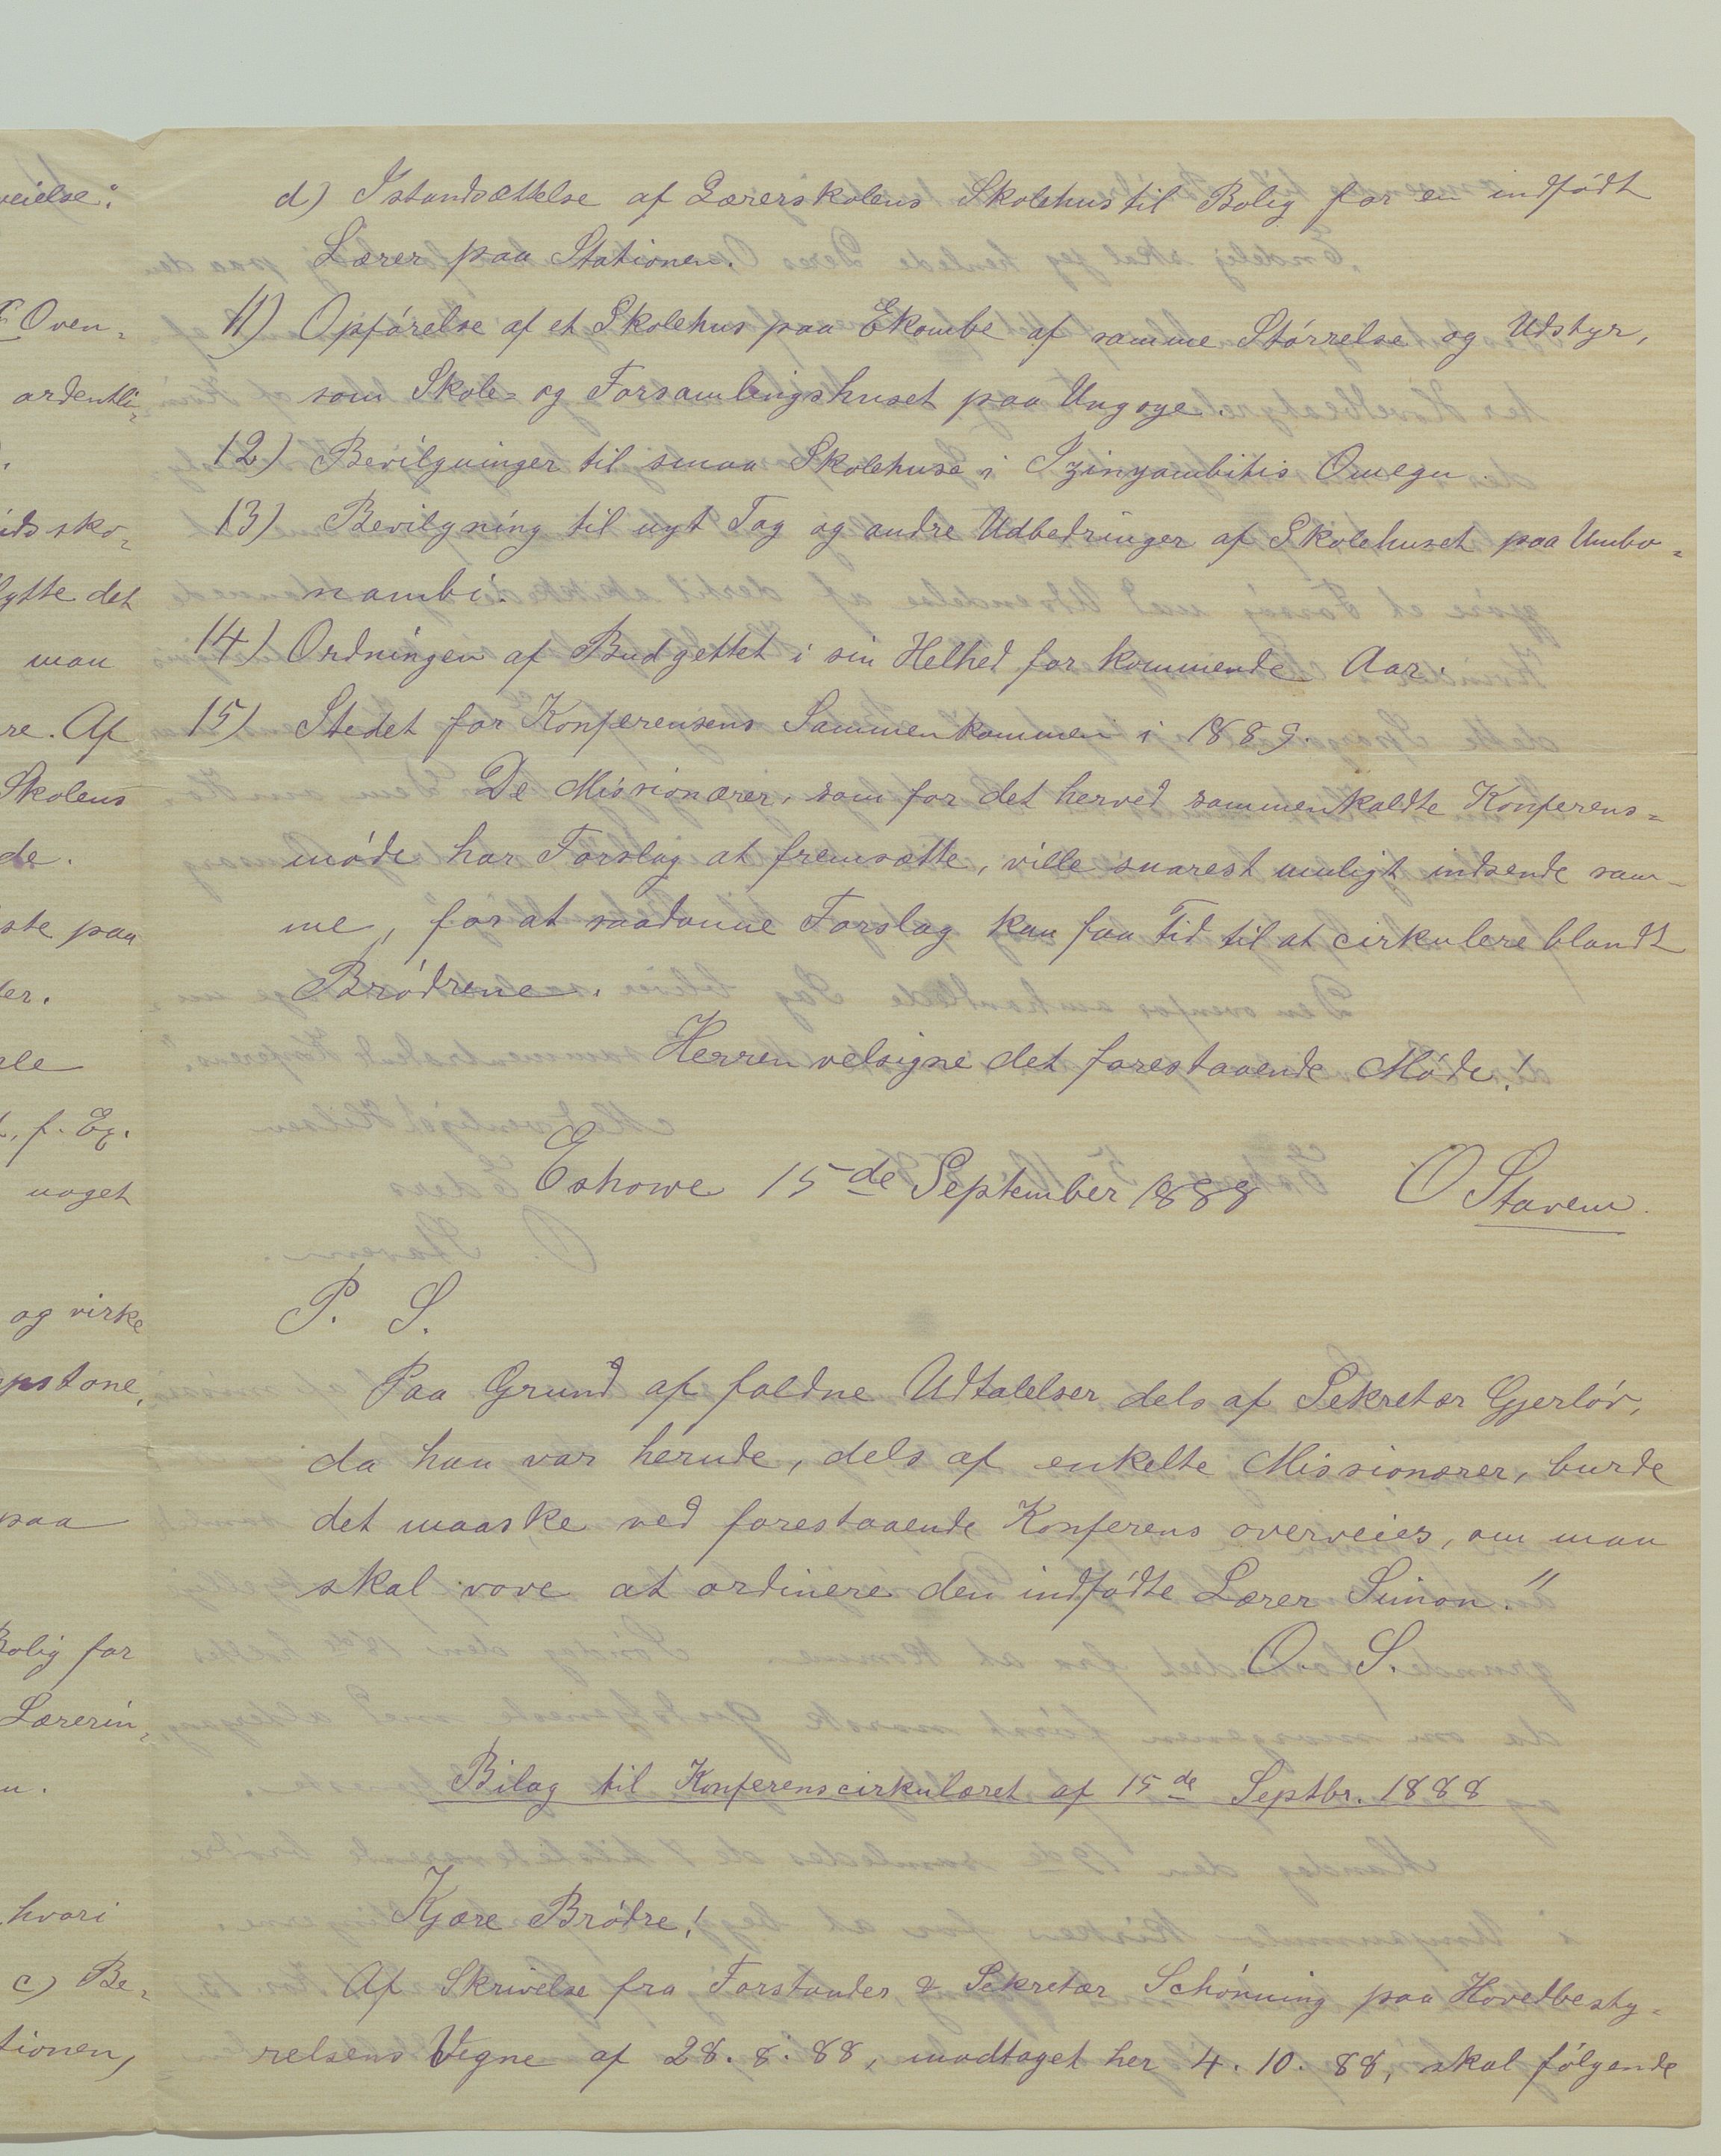 d) Istandsættelse af Lærerskolens Skolehus til Bolig for en indfødt
Lærer paa Stationen.
11) Opførelse af et Skolehus paa Ekombe af samme Størrelse og Udstyr,
som Skole- og Forsamlingshuset paa Ungoye.
12) Bevilgninger til smaa Skolehuse i Izinyambitis Omegn.
13) Bevilgning til nyt Tag og andre Udbedringer af Skolehuset paa Umbo=
nambi.
14) Ordningen af Budgettet i sin Helhed for kommende Aar.
15) Stedet for Konferensens Sammenkommen i 1889.
De Missionærer, som for det herved sammenkaldte Konferens=
møde har Forslag at fremsætte, ville snarest muligt indsende sam-
me, for at saadanne Forslag kan faa Tid til at cirkulere blandt
Brødrene.
Herren velsigne det forestaaende Møde!
Eshowe 15de September 1888 O Stavem.
P. S.
Paa Grund af faldne Udtalelser dels af Sekretær Gjerløv,
da han var herude, dels af enkelte Missionærer, burde
det maaske ved forestaaende Konferens overveies, om man
skal vove at ordinere den indfødte Lærer Simon."
O. S.
Bilag til Konferenscirkulæret af 15de Septbr. 1888
Kjære Brødre!
Af Skrivelse fra Forstander & Sekretær Schønning paa Hovedbesty=
relsens Vegne af 28. 8. 88, modtaget her 4. 10. 88, skal følgende
veielse:
Oven=
ordentli=
idssko=
lytte det
man
re. Af
Skolens
de.
ste paa
der.
ale
f. Ex.
noget
og virke
epstone,
paa
Bolig for
Lærerin=
n.
hvori
c) Be=
tionen,